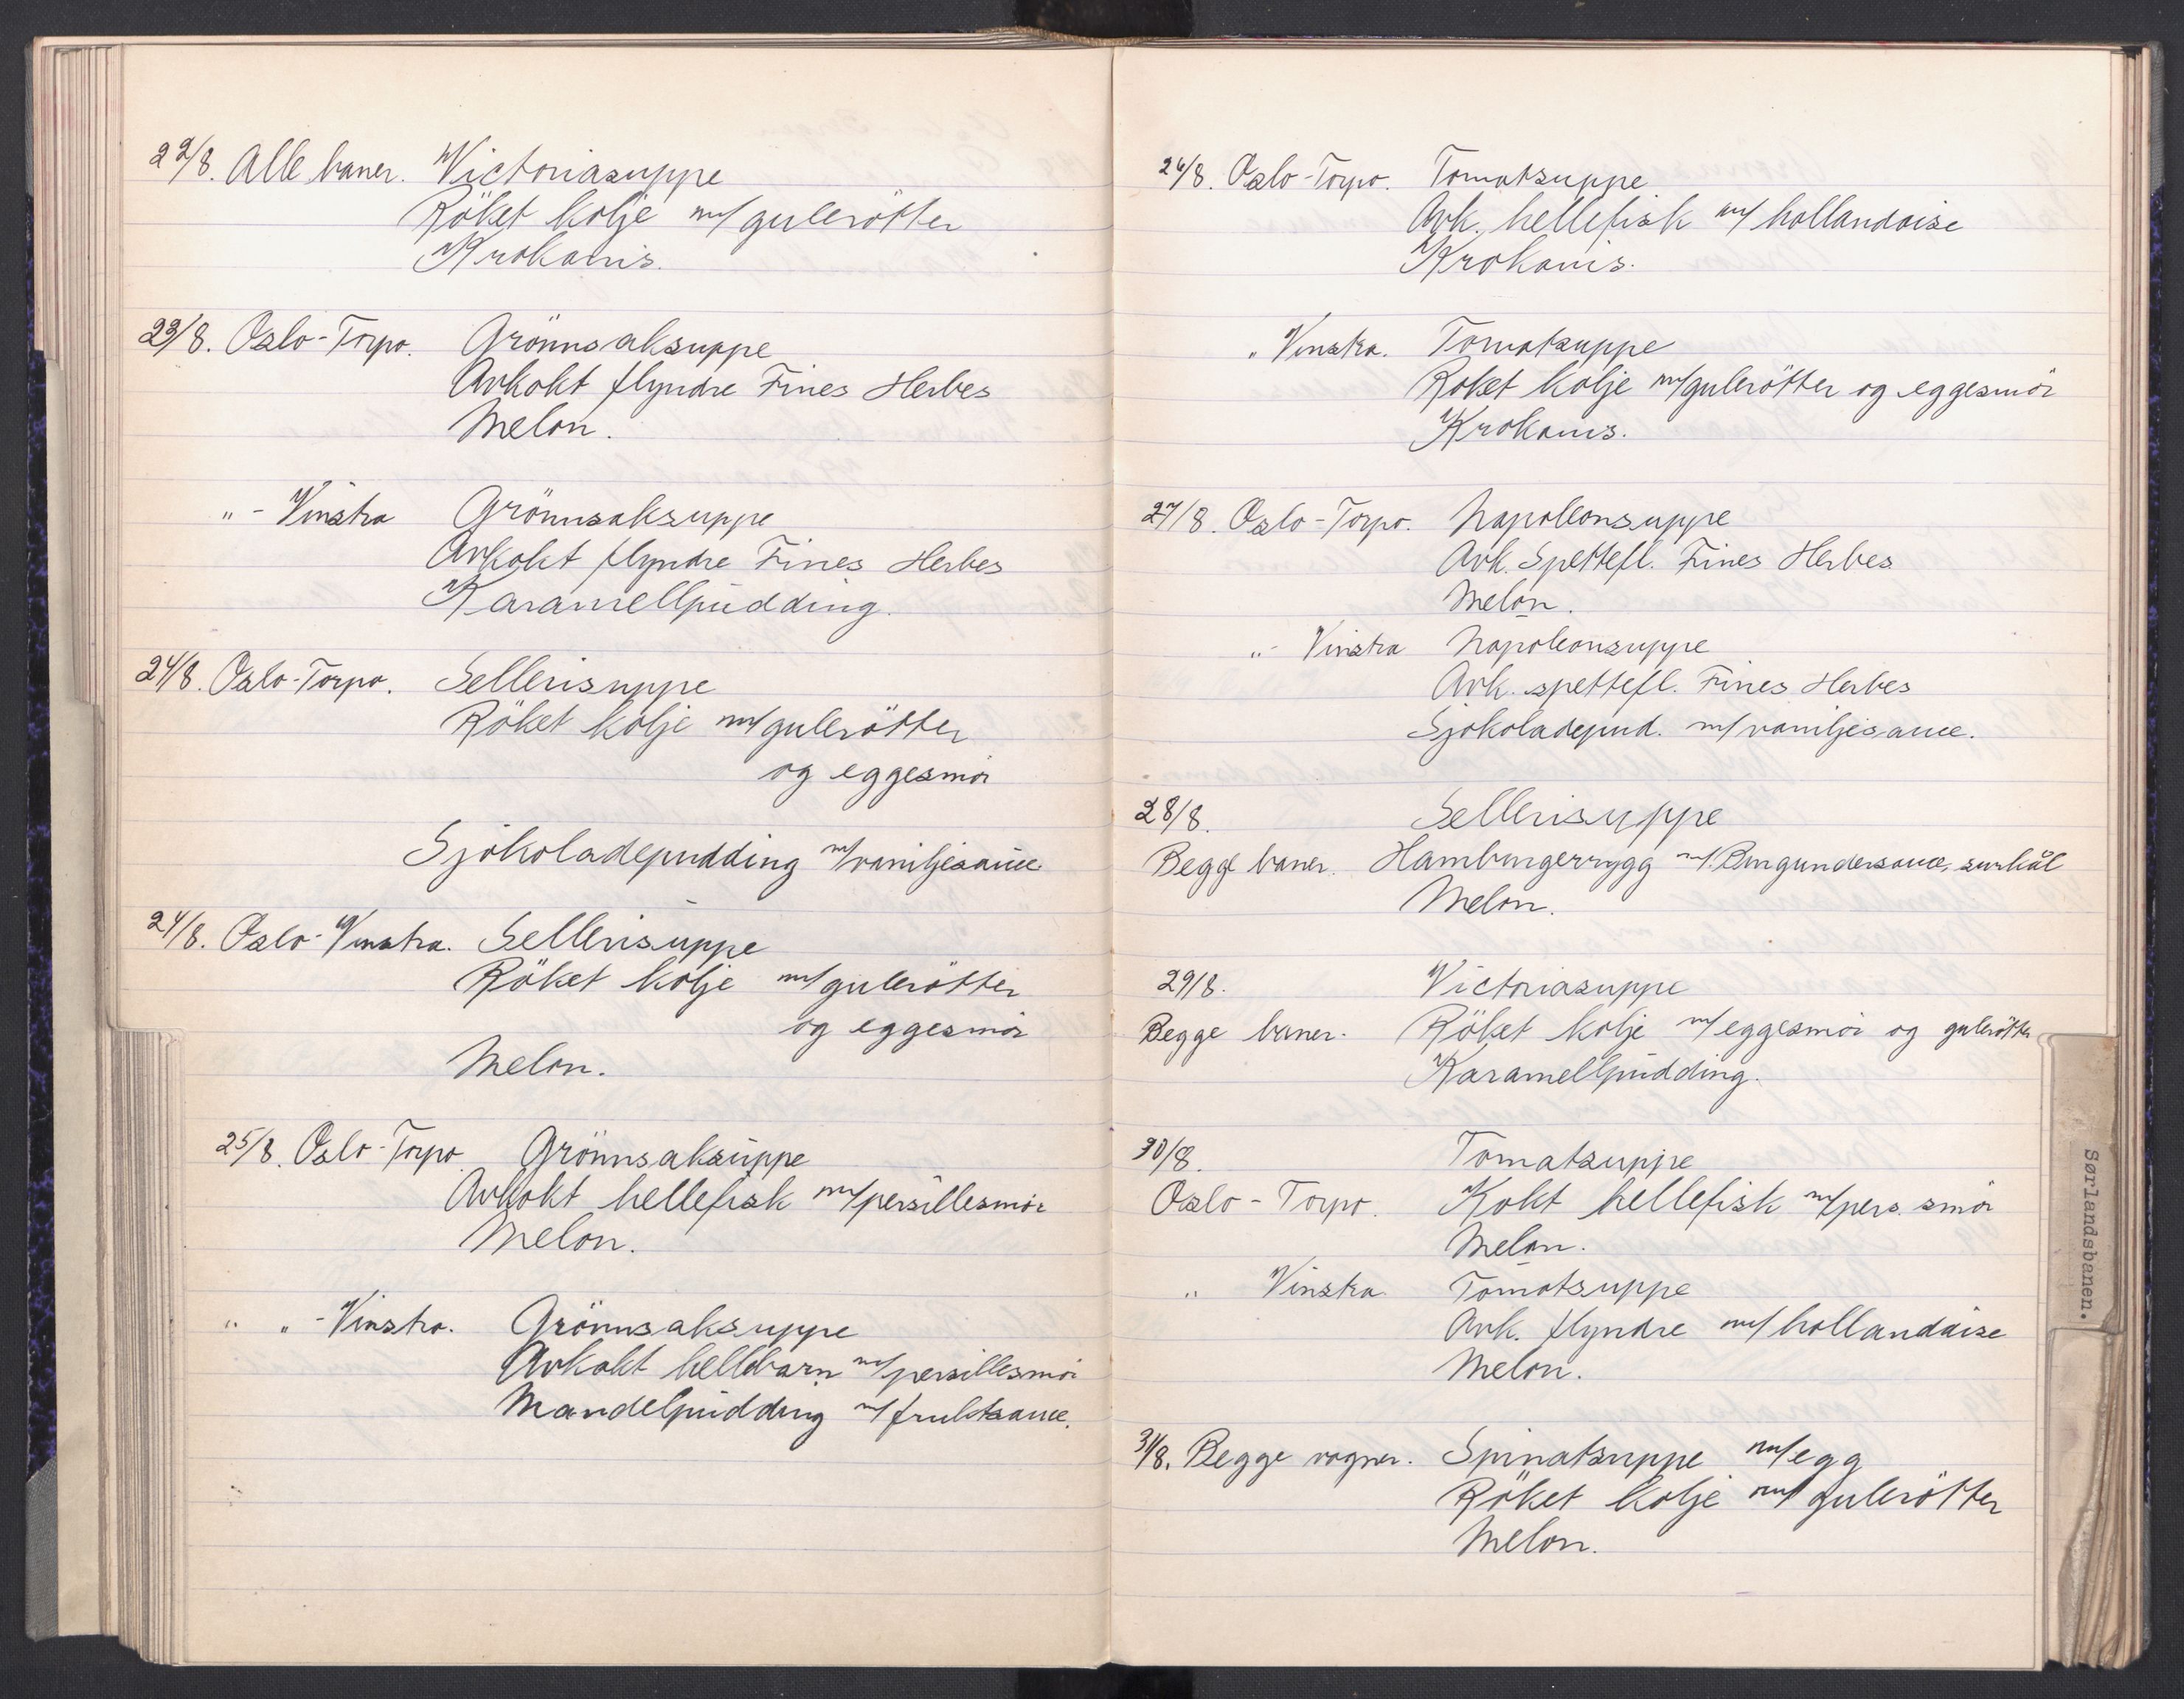 22/8. Alle baner. Victoriasuppe
Röket kolje m/gulerötter
Krokanis.
23/8. Oslo-Torpo. Grönnsaksuppe
Avkokt flyndre Fines Herbes
Melon.
„ - Vinstra Grönnsaksuppe
Avkokt flyndre Fines Herbes
Karamellpudding.
24/8. Oslo-Torpo. Sellerisuppe
Röket kolje m/gulerötter
og eggesmör
Sjokoladepudding m/vaniljesauce
24/8. Oslo-Vinstra. Sellerisuppe
Röket kolje m/gulerötter
og eggesmör
Melon.
25/8. Oslo-Torpo Grönnsaksuppe
Avkokt hellefisk m/persillesmör
Melon.
„ „ - Vinstra. Grönnsaksuppe
Avkokt hellebarn m/persillesmör
Mandelpudding m/fruktsauce.
26/8. Oslo-Torpo. Tomatsuppe
Avk. hellefisk m/hollandaise
Krokanis.
„ Vinstra. Tomatsuppe
Röket kolje m/gulerötter og eggesmör
Krokanis.
27/8. Oslo-Torpo. Napoleonsuppe
Avk. Spettefl. Fines Herbes
Melon.
„ - Vinstra Napoleonsuppe
Avk. spettefl. Fines Herbes
Sjokoladepud. m/vaniljesauce.
28/8. Sellerisuppe
Begge baner. Hamburgerrygg m/Burgundersauce, surkål
Melon.
29/8. Victoriasuppe
Begge baner. Röket kolje m/eggesmör og gulerötter
Karamellpudding.
30/8. Tomatsuppe
Oslo - Torpo. Kokt hellefisk m/pers. smör
Melon.
„ Vinstra. Tomatsuppe
Avk. flyndre m/hollandaise
Melon.
31/8. Begge vogner. Spinatsuppe m/egg
Röket kolje m/gulerötter
Melon.
Sørlandsbanen.